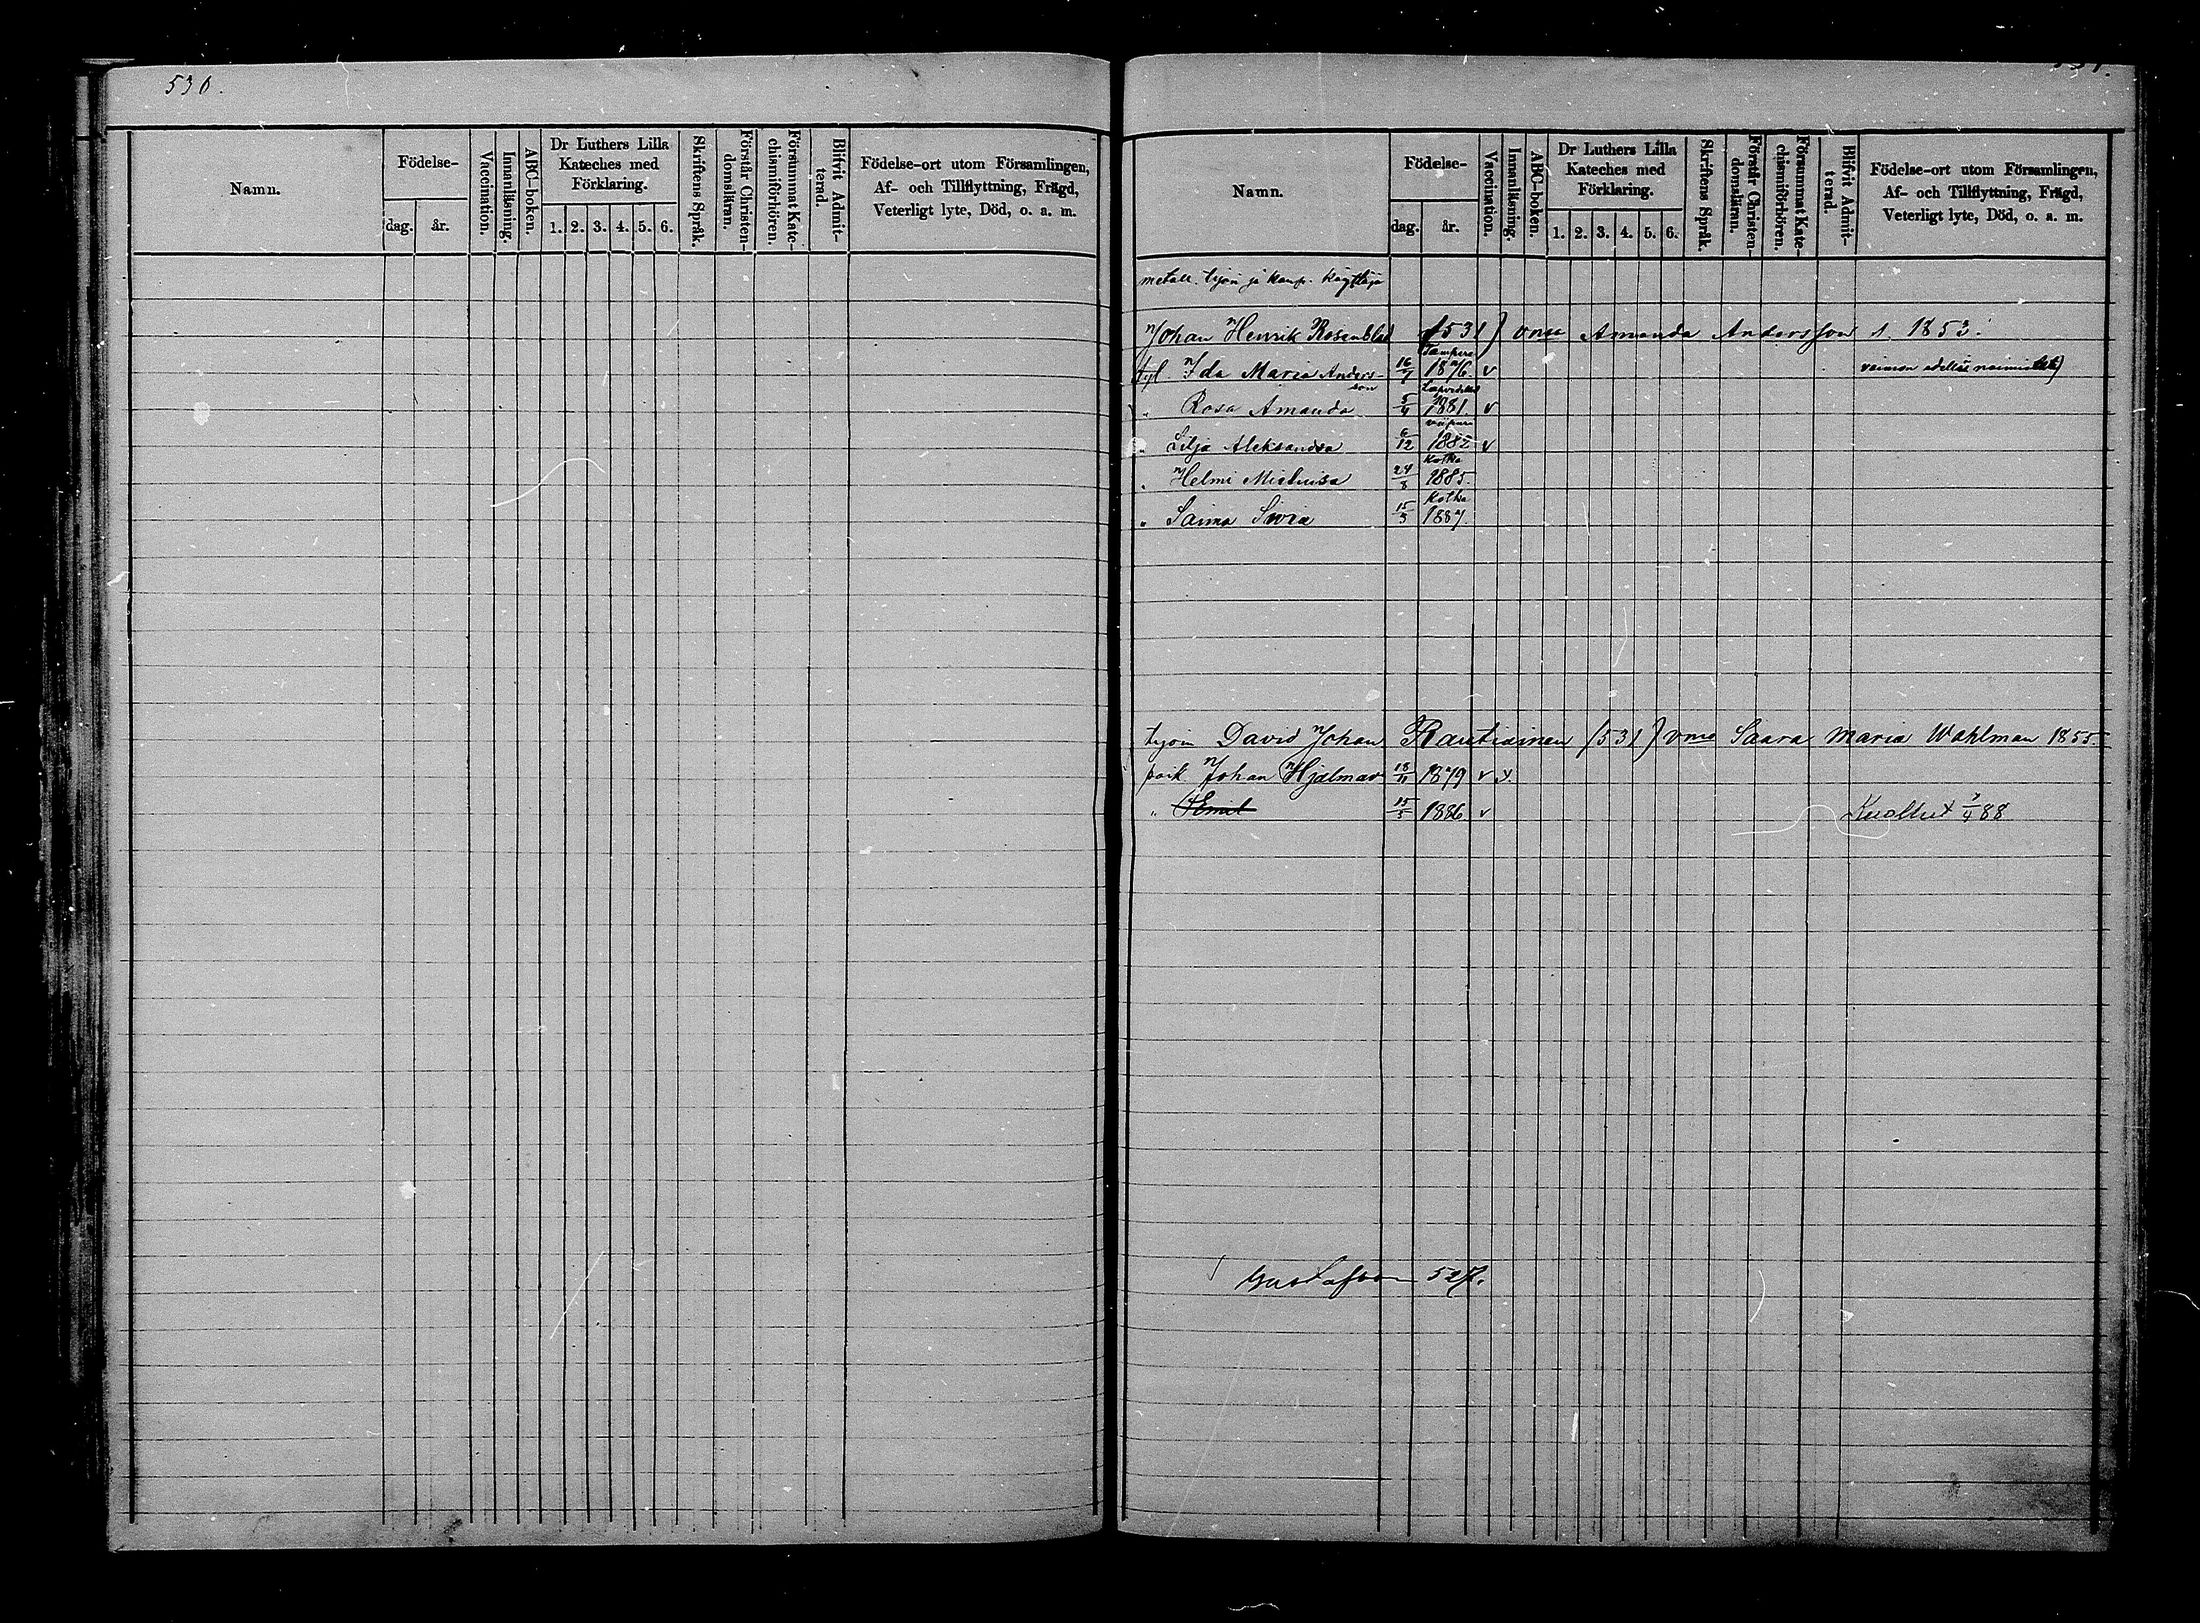 530.
Namn.
Födelse-
dag. år.
Vaccination.
Innanläsning.
ABC-boken.
Dr Luthers Lilla
Kateches med
Förklaring.
1. 2. 3. 4. 5. 6.
Skriftens Språk.
Förstår Christen-
domsläran.
Försummat Kate-
chismiförhören.
Blifvit Admit-
terad.
Födelse-ort utom Församlingen,
Af- och Tillflyttning, Frägd,
Veterligt lyte, Död, o. a. m.
531.
Namn.
Födelse-
dag. år.
Vaccination.
Innanläsning.
ABC-boken.
Dr Luthers Lilla
Kateches med
Förklaring.
1. 2. 3. 4. 5. 6.
Skriftens Språk.
Förstår Christen-
domsläran.
Försummat Kate-
chismiförhören.
Blifvit Admit-
terad.
Födelse-ort utom Församlingen,
Af- och Tillflyttning, Frägd,
Veterligt lyte, Död, o. a. m.
metall. työn ja kamp. käyttäjä
Johan Henrik Rosenblad (531) vmo Amanda Andersson s. 1853.
Tampere
tyt Ida Maria Anders-son 16/7 1876. v vaimon edellisestä
Lapvedeltä
" Rosa Amanda 5/4 1881. v
Viipuri
" Lilja Aleksandra 6/12 1882 v
Kotka
" Helmi Mielusa 24/8 1885.
Kotka
" Saima Siviä 15/3 1887.
työm David Johan Rautiainen (531) vmo Saara Maria Wahlman 1855.
poik Johan Hjalmar 18/11 1879 v x
" Emil 15/3 1886 v Kuollut 7/4 88
Gustafson 527.